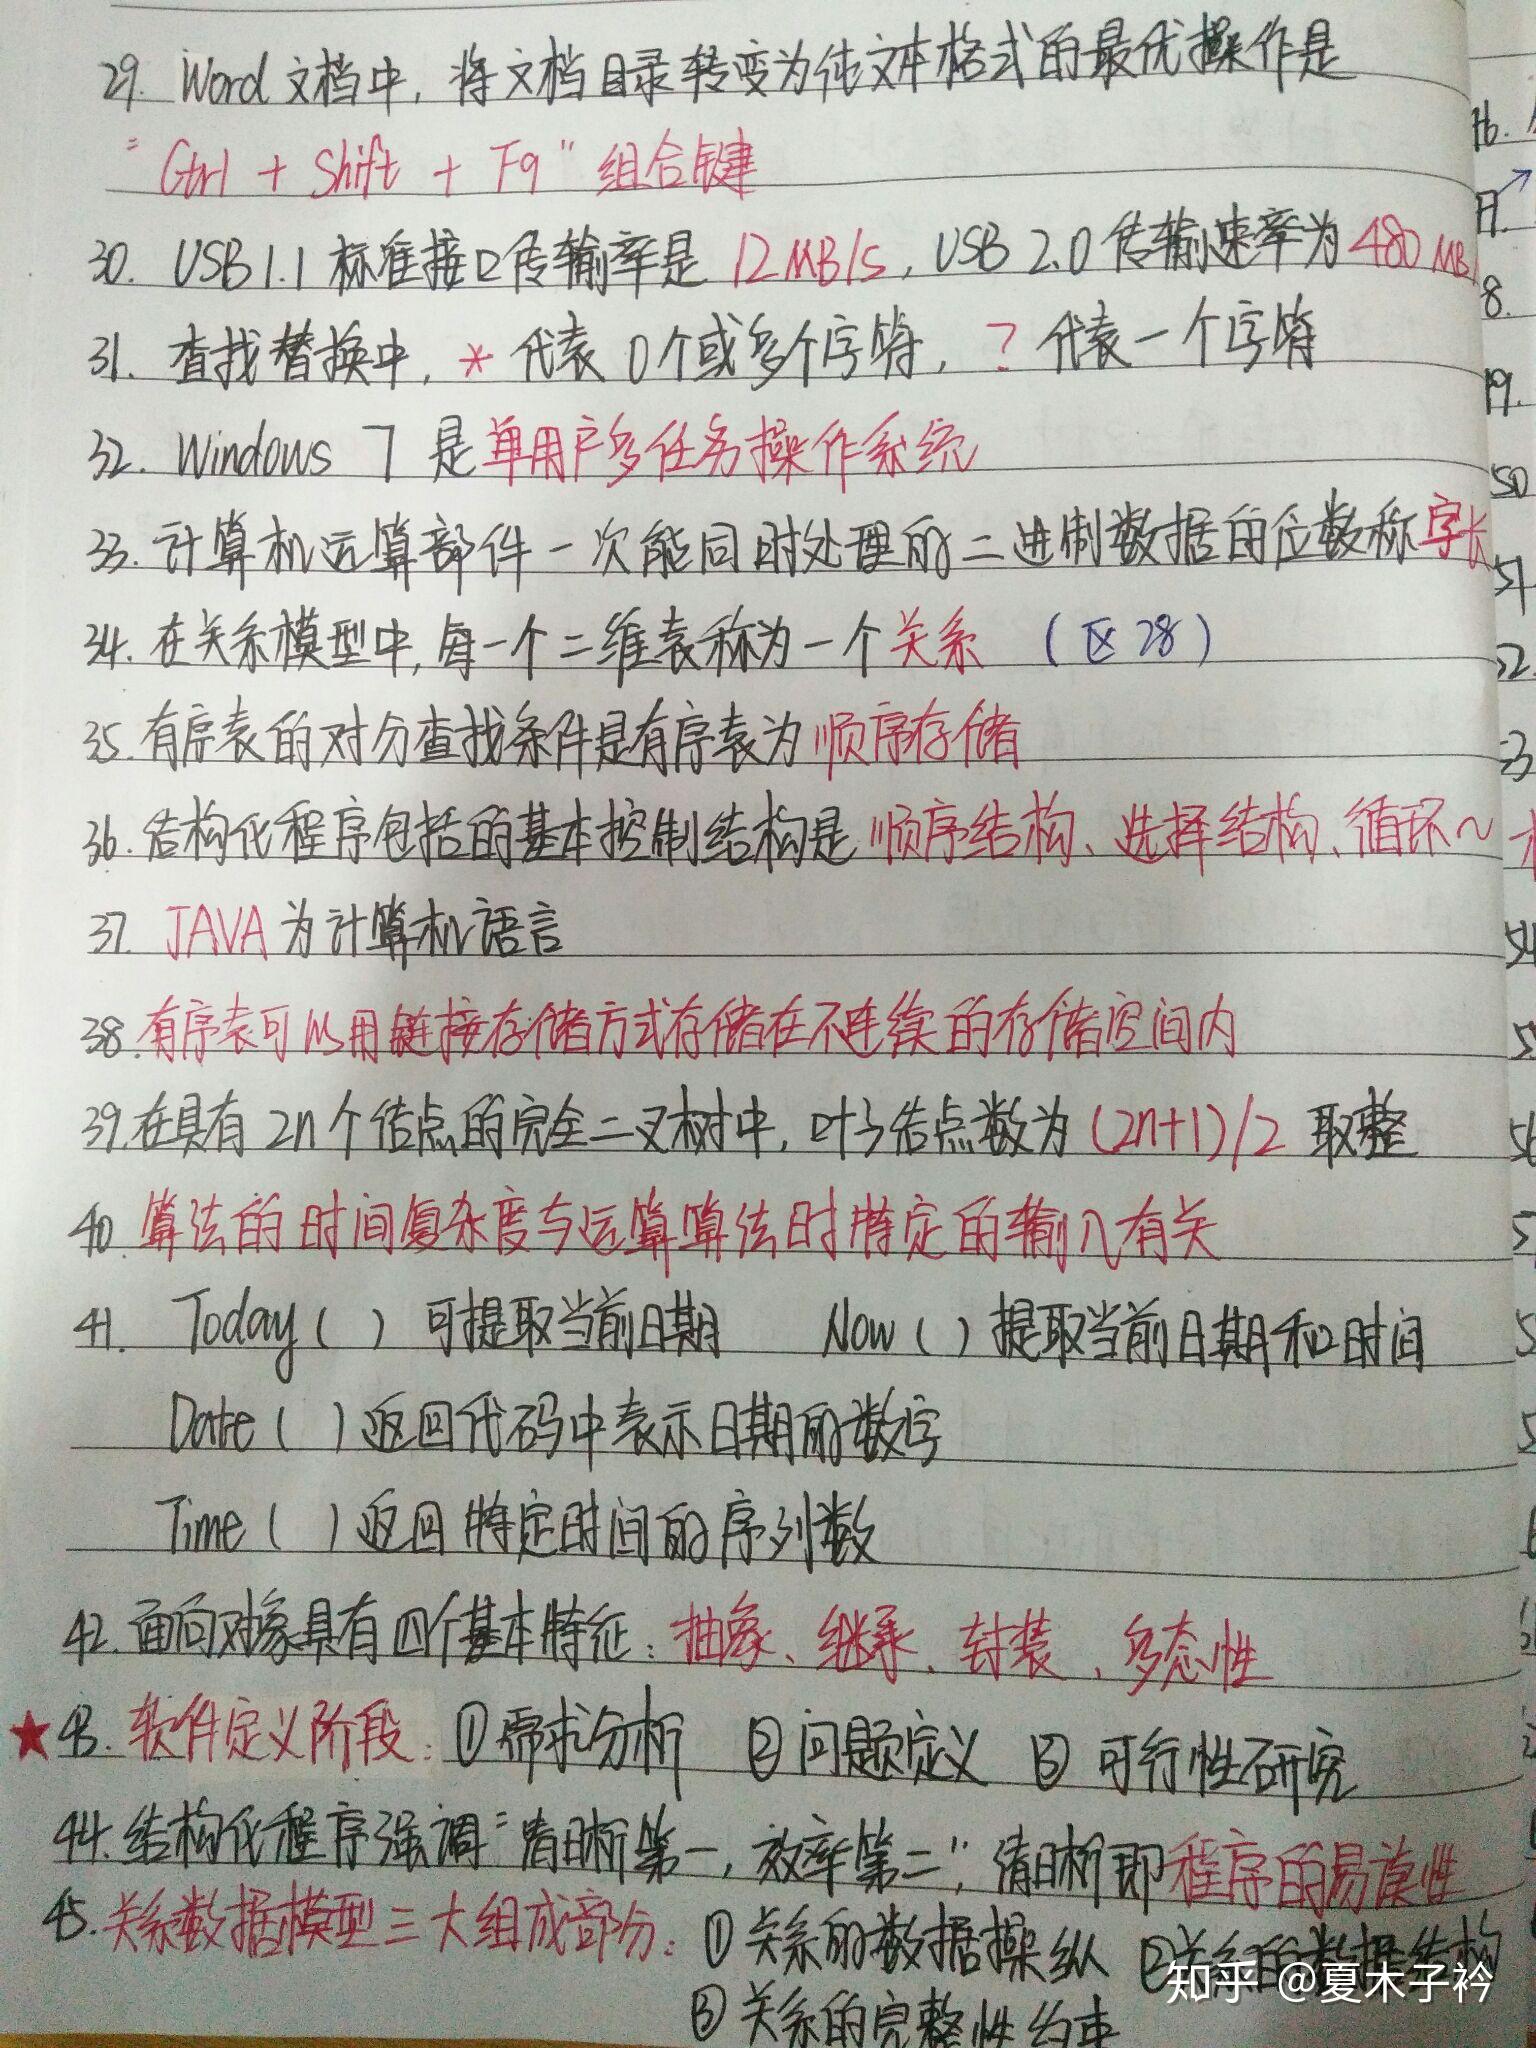 29. Word文档中,将文档目录转变为纯文本格式的最优操作是
"Ctrl + Shift + F9"组合键
30. USB1.1标准接口传输率是12MB/s,USB 2.0传输速率为480MB/
31. 查找替换中,*代表0个或多个字符,?代表一个字符
32. Windows 7是单用户多任务操作系统
33. 计算机运算部件一次能同时处理的二进制数据的位数称字长
34. 在关系模型中,每一个二维表称为一个关系 (区28)
35. 有序表的对分查找条件是有序表为顺序存储
36. 结构化程序包括的基本控制结构是顺序结构、选择结构、循环~
37. JAVA为计算机语言
38. 有序表可以用链接存储方式存储在不连续的存储空间内
39. 在具有2n个结点的完全二叉树中,叶子结点数为(2n+1)/2 取整
40. 算法的时间复杂度与运算算法时特定的输入有关
41. Today( )可提取当前日期 Now( )提取当前日期和时间
Date( )返回代码中表示日期的数字
Time( )返回特定时间的序列数
42. 面向对象具有四个基本特征:抽象、继承、封装、多态性
★43. 软件定义阶段:①需求分析 ②问题定义 ③可行性研究
44. 结构化程序强调"清晰第一,效率第二",清晰即程序的易读性
45. 关系数据模型三大组成部分:①关系的数据操纵 ②关系的数据结构
③关系的完整性约束
知乎 @夏木子衿
50
51
54
56